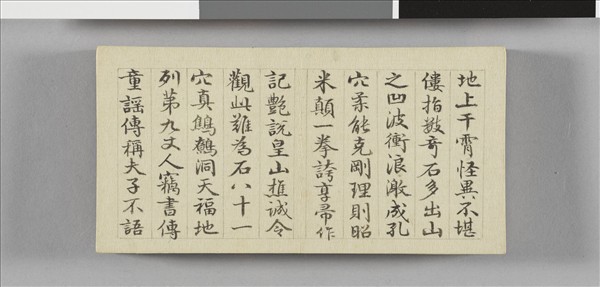 地上干霄怪異不堪
僂指數奇石多出山
之凹波衝浪漱成孔
穴柔能克剛理則昭
米顛一拳誇享帚作
記艷說皇山植誠令
觀此難為石八十一
穴真鷦鷯洞天福地
列第九丈人竊書傳
童謠傳稱夫子不語